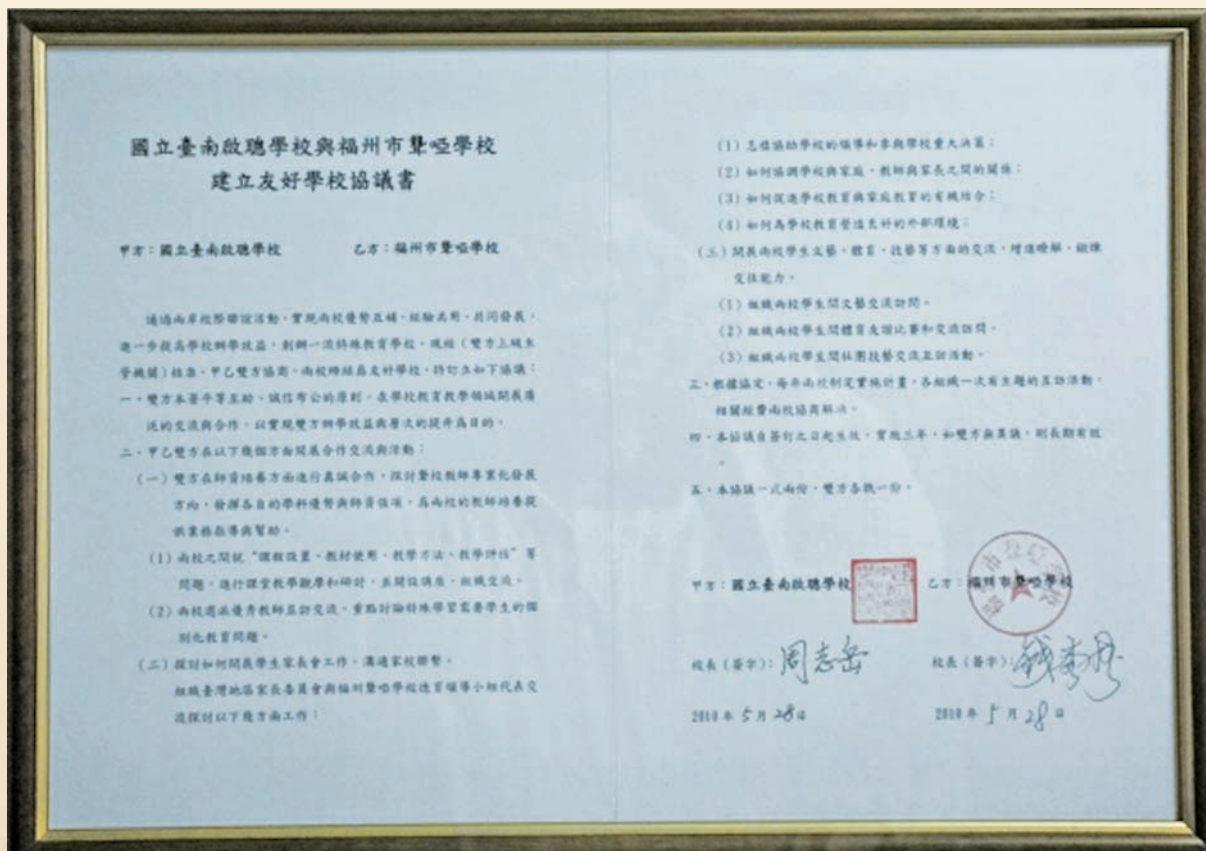 國立臺南啟聰學校與福州市聾啞學校
建立友好學校協議書
甲方：國立臺南啟聰學校　乙方：福州市聾啞學校
通過兩岸校際聯誼活動，實現兩校優勢互補、經驗共用、共同發展，
進一步提高學校辦學效益，創辦一流特殊教育學校。現經（雙方上級主
管機關）核准，甲乙雙方協商，兩校締結為友好學校，特訂立如下協議：
一、雙方本著平等互助、誠信布公的原則，在學校教育教學領域開展廣
泛的交流與合作，以實現雙方辦學效益與層次的提升為目的。
二、甲乙雙方在以下幾個方面開展合作交流與活動：
（一）雙方在師資培養方面進行真誠合作，探討聾校教師專業化發展
方向，發揮各自的學科優勢與師資強項，為兩校的教師培養提
供業務指導與幫助。
（1）兩校之間就“課程設置、教材使用、教學方法、教學評估”等
問題，進行課堂教學觀摩和研討，並開設講座，組織交流。
（2）兩校選派優秀教師互訪交流，重點討論特殊學習需要學生的個
別化教育問題。
（二）探討如何開展學生家長會工作，溝通家校聯繫。
組織臺灣地區家長委員會與福州聾啞學校德育領導小組代表交
流探討以下幾方面工作：
（1）怎樣協助學校的領導和參與學校重大決策；
（2）如何協調學校與家庭、教師與家長之間的關係；
（3）如何促進學校教育與家庭教育的有機結合；
（4）如何為學校教育營造良好的外部環境；
（三）開展兩校學生文藝、體育、技藝等方面的交流，增進瞭解，鍛煉
交往能力。
（1）組織兩校學生間文藝交流訪問。
（2）組織兩校學生間體育友誼比賽和交流訪問。
（3）組織兩校學生間社團技藝交流互訪活動。
三、根據協定，每年兩校制定實施計畫，各組織一次有主題的互訪活動，
相關經費兩校協商解決。
四、本協議自簽訂之日起生效，實施三年，如雙方無異議，則長期有效
。
五、本協議一式兩份，雙方各執一份。
甲方：國立臺南啟聰學校　乙方：福州市聾啞學校
校長（簽字）：周志岳　校長（簽字）：
2010 年 5 月 28 日　2010 年 5 月 28 日